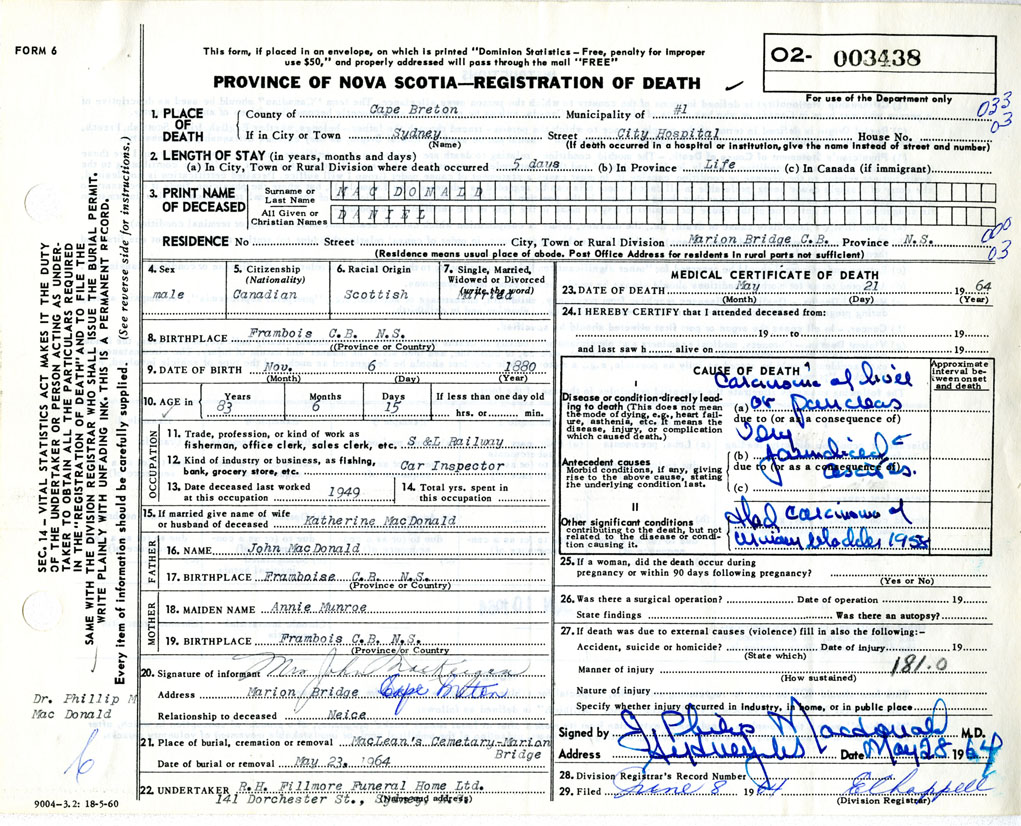 FORM 6
This form, if placed in an envelope, on which is printed "Dominion Statistics – Free, penalty for improper
use $50," and properly addressed will pass through the mail "FREE"
PROVINCE OF NOVA SCOTIA—REGISTRATION OF DEATH
02- 003438
For use of the Department only
033
03
1. PLACE OF DEATH
County of Cape Breton Municipality of #1
If in City or Town Sydney Street City Hospital House No.
(Name) (If death occurred in a hospital or institution, give the name instead of street and number)
2. LENGTH OF STAY (in years, months and days)
(a) In City, Town or Rural Division where death occurred 5 days (b) In Province Life (c) In Canada (if immigrant)
3. PRINT NAME OF DECEASED
Surname or Last Name MAC DONALD
All Given or Christian Names DANIEL
000
03
RESIDENCE No Street City, Town or Rural Division Marion Bridge C.B. Province N.S.
(Residence means usual place of abode. Post Office Address for residents in rural parts not sufficient)
4. Sex
male
5. Citizenship
(Nationality)
Canadian
6. Racial Origin
Scottish
7. Single, Married,
Widowed or Divorced
(write the word)
Married
8. BIRTHPLACE Frambois C.B. N.S.
((Province or Country)
9. DATE OF BIRTH Nov. 6 1880
(Month) (Day) (Year)
10. AGE in Years Months Days If less than one day old
83 6 15 hrs. or min.
OCCUPATION
11. Trade, profession, or kind of work as
fisherman, office clerk, sales clerk, etc. S &L Railway
12. Kind of industry or business, as fishing,
bank, grocery store, etc. Car Inspector
13. Date deceased last worked
at this occupation 1949
14. Total yrs. spent in
this occupation
15. If married give name of wife
or husband of deceased Katherine MacDonald
FATHER
16. NAME John MacDonald
17. BIRTHPLACE Framboise C.B. N.S.
(Province or Country)
MOTHER
18. MAIDEN NAME Annie Munroe
19. BIRTHPLACE Frambois C.B. N.S.
(Province/or Country)
20. Signature of informant Mrs John MacKeigan
Address Marion Bridge Cape Breton
Relationship to deceased Neice
21. Place of burial, cremation or removal MacLean's Cemetary-Marion
Bridge
Date of burial or removal May 23, 1964
22. UNDERTAKER R.H. Fillmore Funeral Home Ltd.
141 Dorchester St.,
(Name and address)
MEDICAL CERTIFICATE OF DEATH
23. DATE OF DEATH May 21 1964
(Month) (Day) (Year)
24. I HEREBY CERTIFY that I attended deceased from:
19 to 19
and last saw h alive on 19
CAUSE OF DEATH
Approximate
interval be-
tween onset
and death
I
Disease or condition directly lead-
ing to death (This does not mean
the mode of dying, e.g., heart fail-
ure, asthenia, etc. It means the
disease, injury, or complication
which caused death.)
Carcinoma of liver
(a) or pancreas
due to (or as a consequence of)
Very
Antecedent causes
Morbid conditions, if any, giving
rise to the above cause, stating
the underlying condition last.
(b) jaundiced c
due to (or as a consequence of)
ascites.
(c)
II
Other significant conditions
contributing to the death, but not
related to the disease or condi-
tion causing it.
Had carcinoma of
urinary bladder 1958
25. If a woman, did the death occur during
pregnancy or within 90 days following pregnancy?
(Yes or No)
26. Was there a surgical operation? Date of operation 19
State findings Was there an autopsy?
27. If death was due to external causes (violence) fill in also the following:–
Accident, suicide or homicide? Date of injury 19
(State which)
Manner of injury 181.0
(How sustained)
Nature of injury
Specify whether injury occurred in industry, in home, or in public place
Signed by J Philip Macdonald M.D.
Address Sydney NS Date May 28 1964
28. Division Registrar's Record Number
29. Filed June 8 1964
(Division Registrar)
SEC. 14 – VITAL STATISTICS ACT MAKES IT THE DUTY
OF THE UNDERTAKER OR PERSON ACTING AS UNDER-
TAKER TO OBTAIN ALL THE PARTICULARS REQUIRED
IN THE "REGISTRATION OF DEATH" AND TO FILE THE
SAME WITH THE DIVISION REGISTRAR WHO SHALL ISSUE THE BURIAL PERMIT.
WRITE PLAINLY WITH UNFADING INK. THIS IS A PERMANENT RECORD.
Every item of information should be carefully supplied. (See reverse side for instructions.)
Dr. Phillip M
Mac Donald
6
9004-3.2: 18-5-60